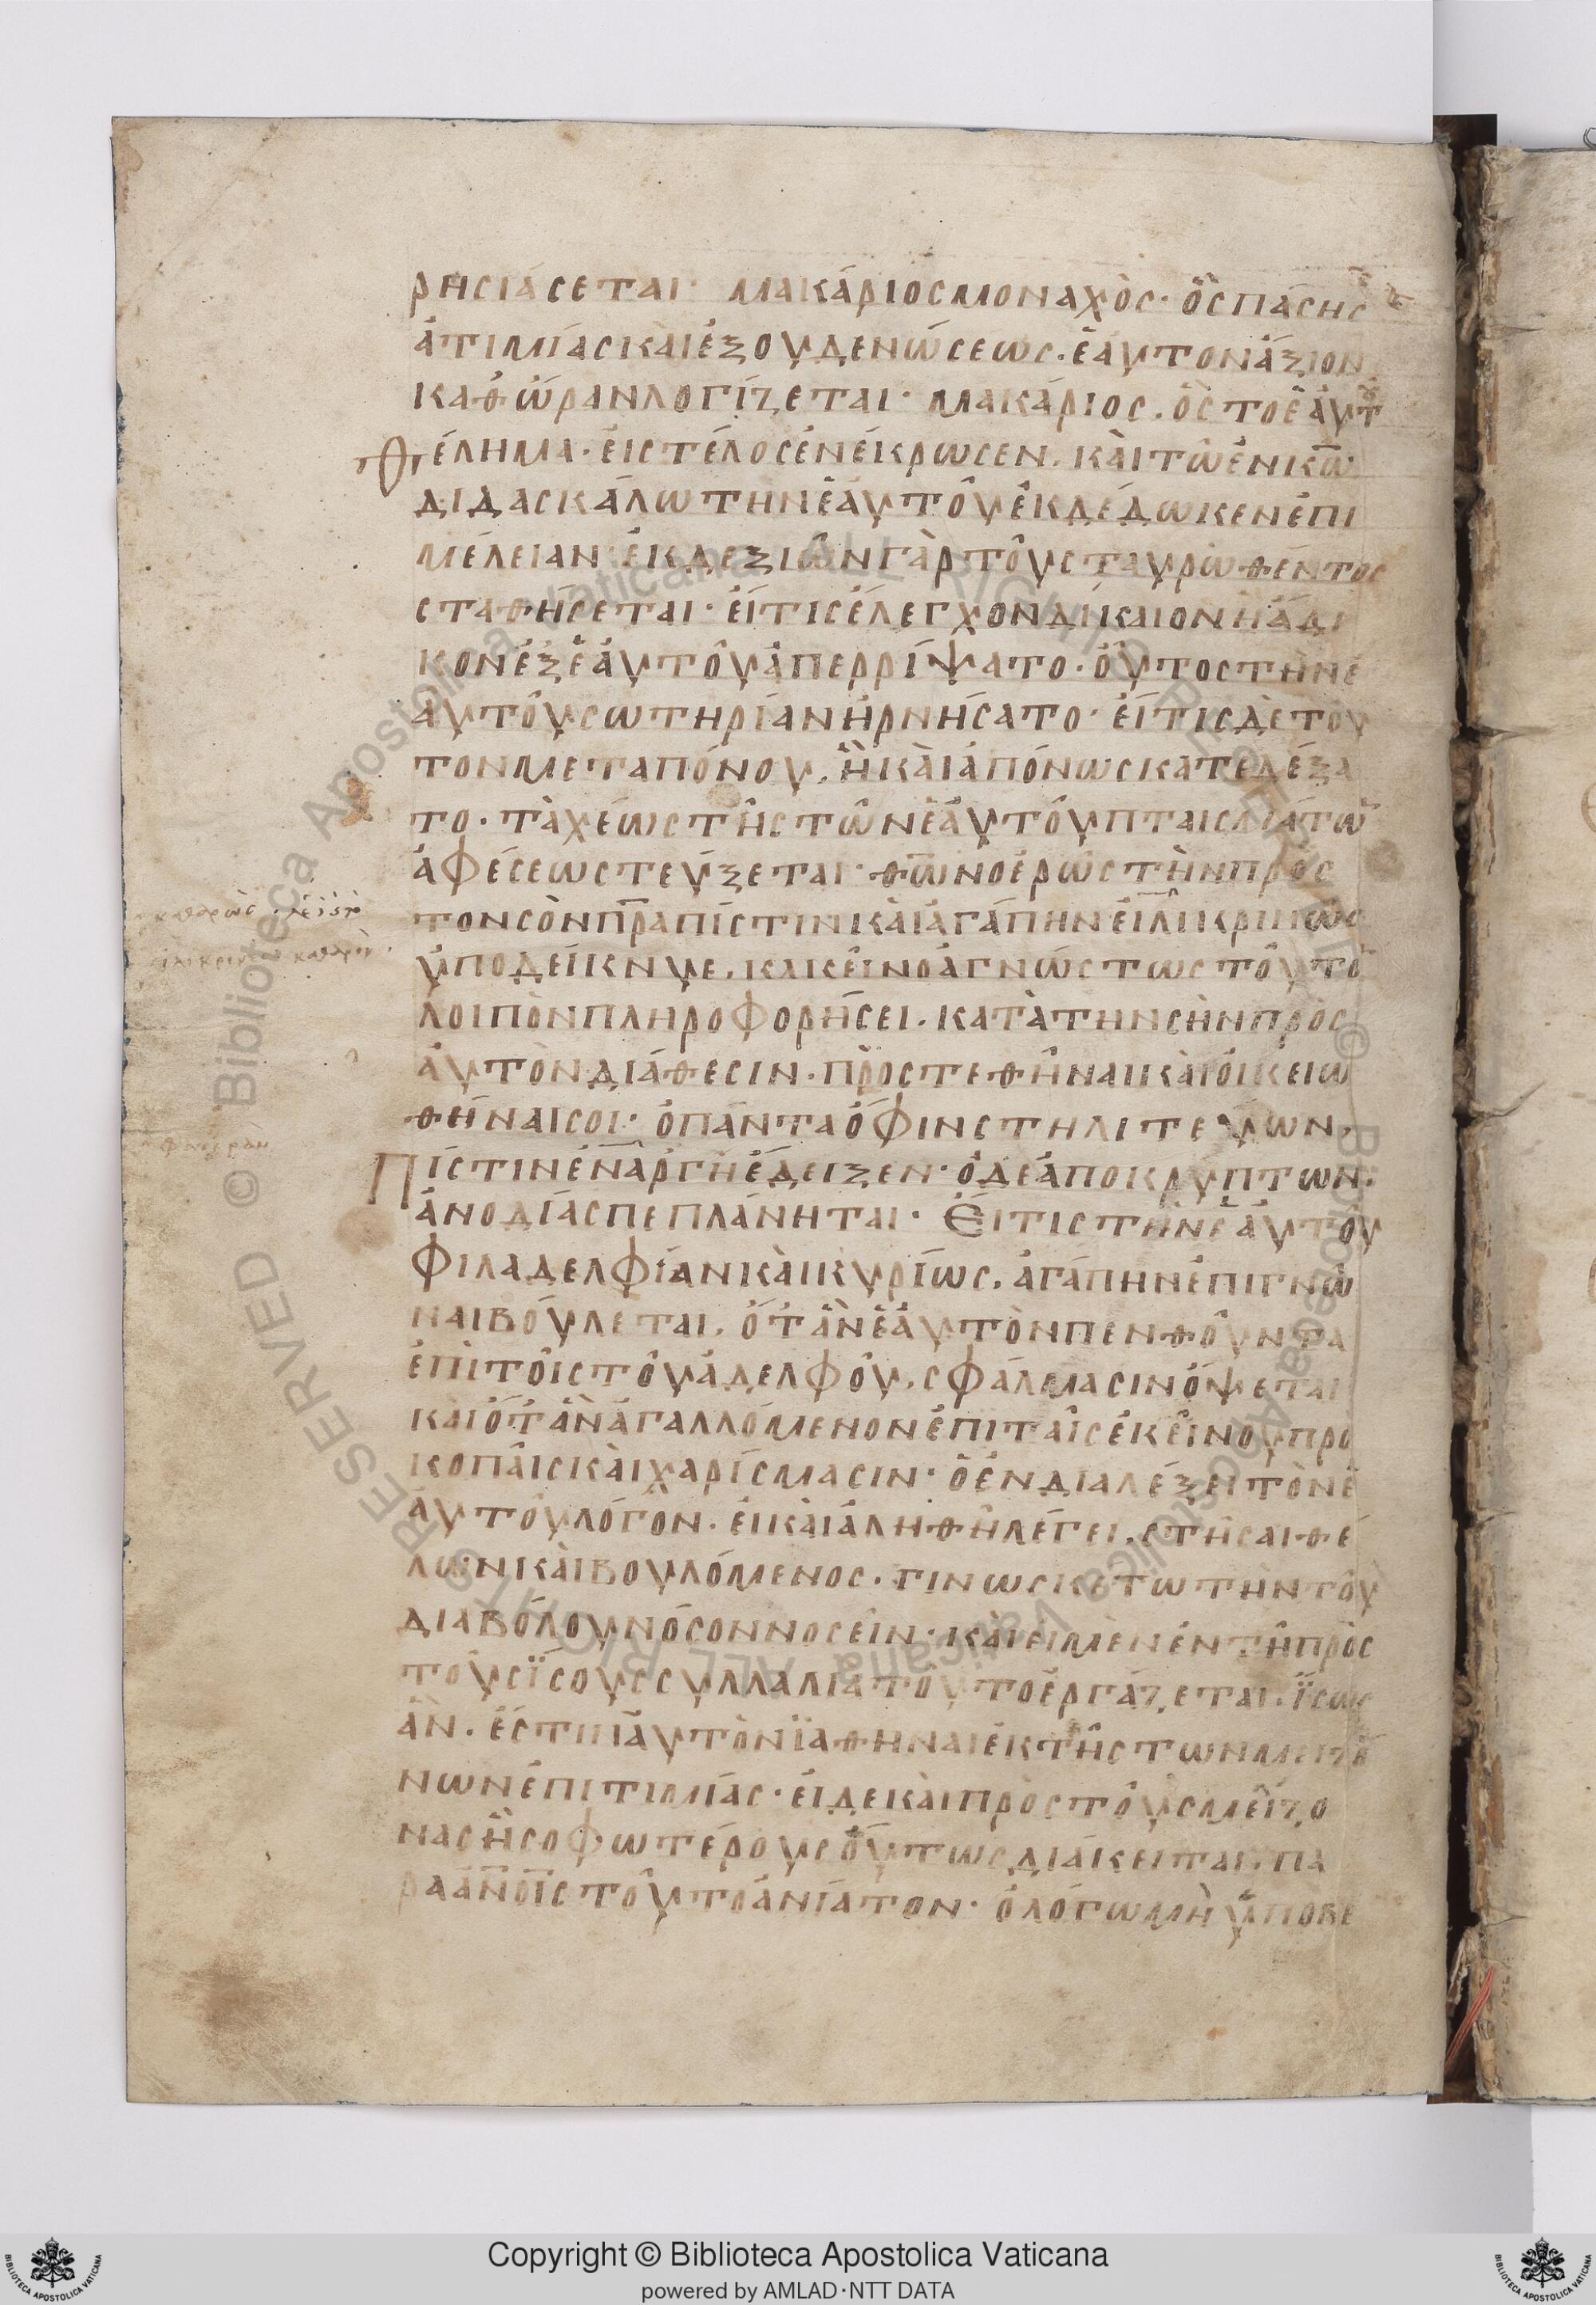 ρησιάσεται· μακάριος μοναχὸς· ὃς πάσης
ἀτιμίας καὶ ἐξουδενώσεως· ἑαυτὸν ἄξιον
καθ ὥραν λογίζεται· μακάριος, ὃς τὸ ἑαυτ
θέλημα· εἰς τέλος ἐνέκρωσεν, καὶ τῶ ἐν κω
διδασκάλω τὴν ἑαυτοῦ ἐκδέδωκεν ἐπι
μέλειαν· ἐκ δεξιῶν γὰρ τοῦ σταυρωθέντος
σταθήσεται· εἴ τις ἔλεγχον δίκαιον ἢ ἄδι
κον ἐξ ἑαυτοῦ ἀπερρίψατο· οὗτος τὴν ἑ
αυτοῦ σωτηρίαν ἠρνήσατο· εἴ τις δὲ τοῦ
τον μετὰ πόνου, ἢ καὶ ἀπόνως κατεδέξα
το· ταχέως τῆς τῶν ἑαυτοῦ πταισμάτω
ἀφέσεως τεύξεται· θω νοερῶς τὴν πρὸς
τὸν σὸν πρα πίστιν καὶ ἀγάπην εἰλικρινῶς
ὑποδείκνυε, κακεῖνο ἀγνώστως τοῦτο
λοιπὸν πληροφορήσει, κατὰ τὴν σὴν πρὸς
αὐτὸν διάθεσιν· προστεθῆναι καὶ οἰκειω
θῆναι σοι· ὁ πάντα ὄφιν στηλιτεύων,
Πίστιν ἐναργῆ ἔδειξεν· ὁ δὲ ἀποκρύπτων·
ἀνοδίας πεπλάνηται· Εἴ τις τὴν ἑαυτοῦ
φιλαδελφίαν καὶ κυρίως, ἀγάπην ἐπιγνῶ
ναι βούλεται, ὅτ ἂν ἑαυτὸν πενθοῦντα
ἐπὶ τοῖς τοῦ ἀδελφοῦ, σφάλμασιν ὄψεται
καὶ ὅτ ἂν ἀγαλλόμενον ἐπὶ ταῖς ἐκείνου προ
κοπαῖς καὶ χαρίσμασιν· ὁ ἐν διαλέξει τὸν ἑ
αυτοῦ λόγον· εἰ καὶ ἀληθῆ λέγει, στῆσαι θέ
λων καὶ βουλόμενος· γινωσκέτω τὴν τοῦ
διαβόλου νόσον νοσεῖν· καὶ εἰ μὲν ἐν τῆ πρὸς
τοὺς ἴσους συλλαλιᾶ τοῦτο ἐργάζεται, ἴσως
ἂν· ἔστιν αὐτὸν ἰαθῆναι ἐκ τῆς τῶν μειζό
νων ἐπιτιμίας· εἰ δὲ καὶ πρὸς τοὺς μείζο
νας ἢ σοφωτέρους οὕτως διάκειται, πα
ρὰ ανοις τοῦτο ἀνίατον· ὁ λόγω μὴ ὑποβε